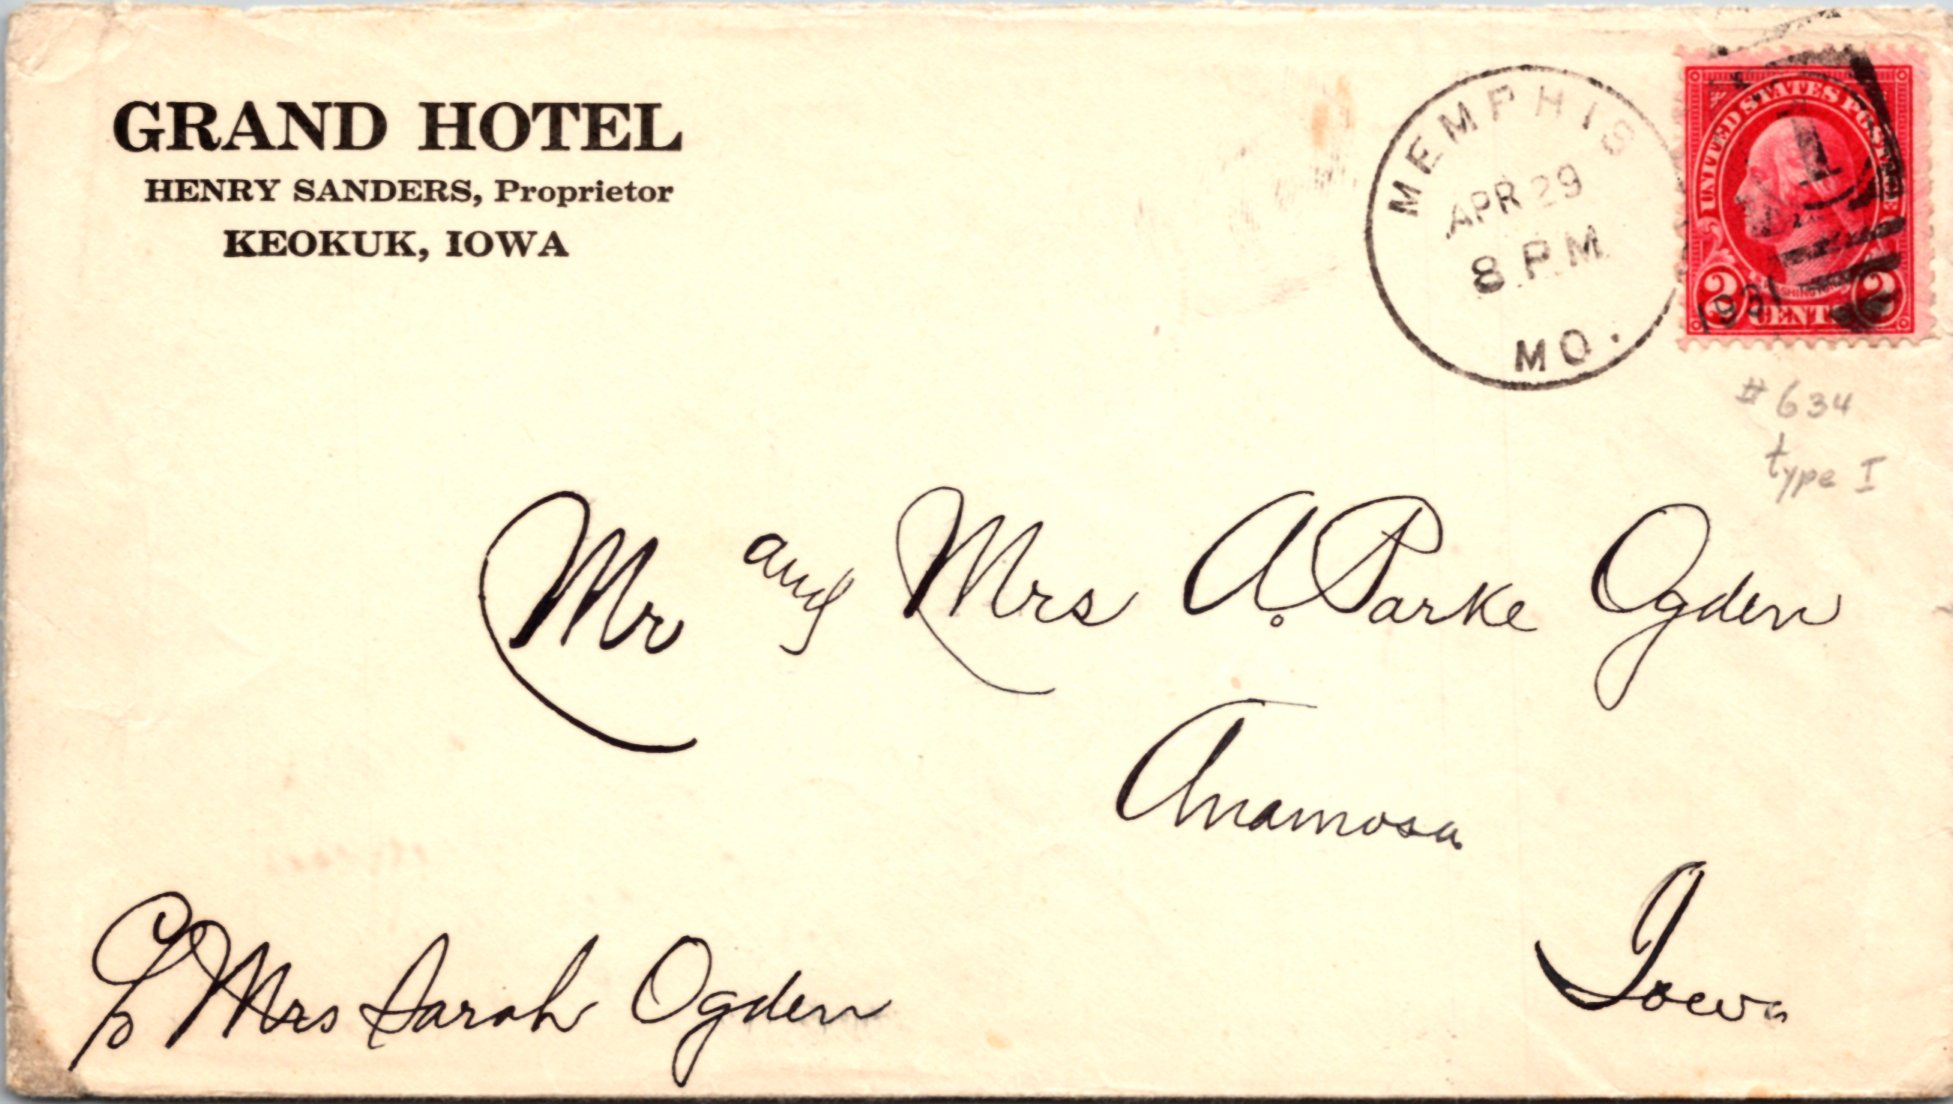 GRAND HOTEL
HENRY SANDERS, Proprietor
KEOKUK, IOWA
MEMPHIS
APR 29
8 P.M.
MO.
1931
UNITED STATES POSTAGE
1
2 CENTS 2
#634
type I
Mr and Mrs A. Parke Ogden
Anamosa
Iowa
c/o Mrs Sarah Ogden